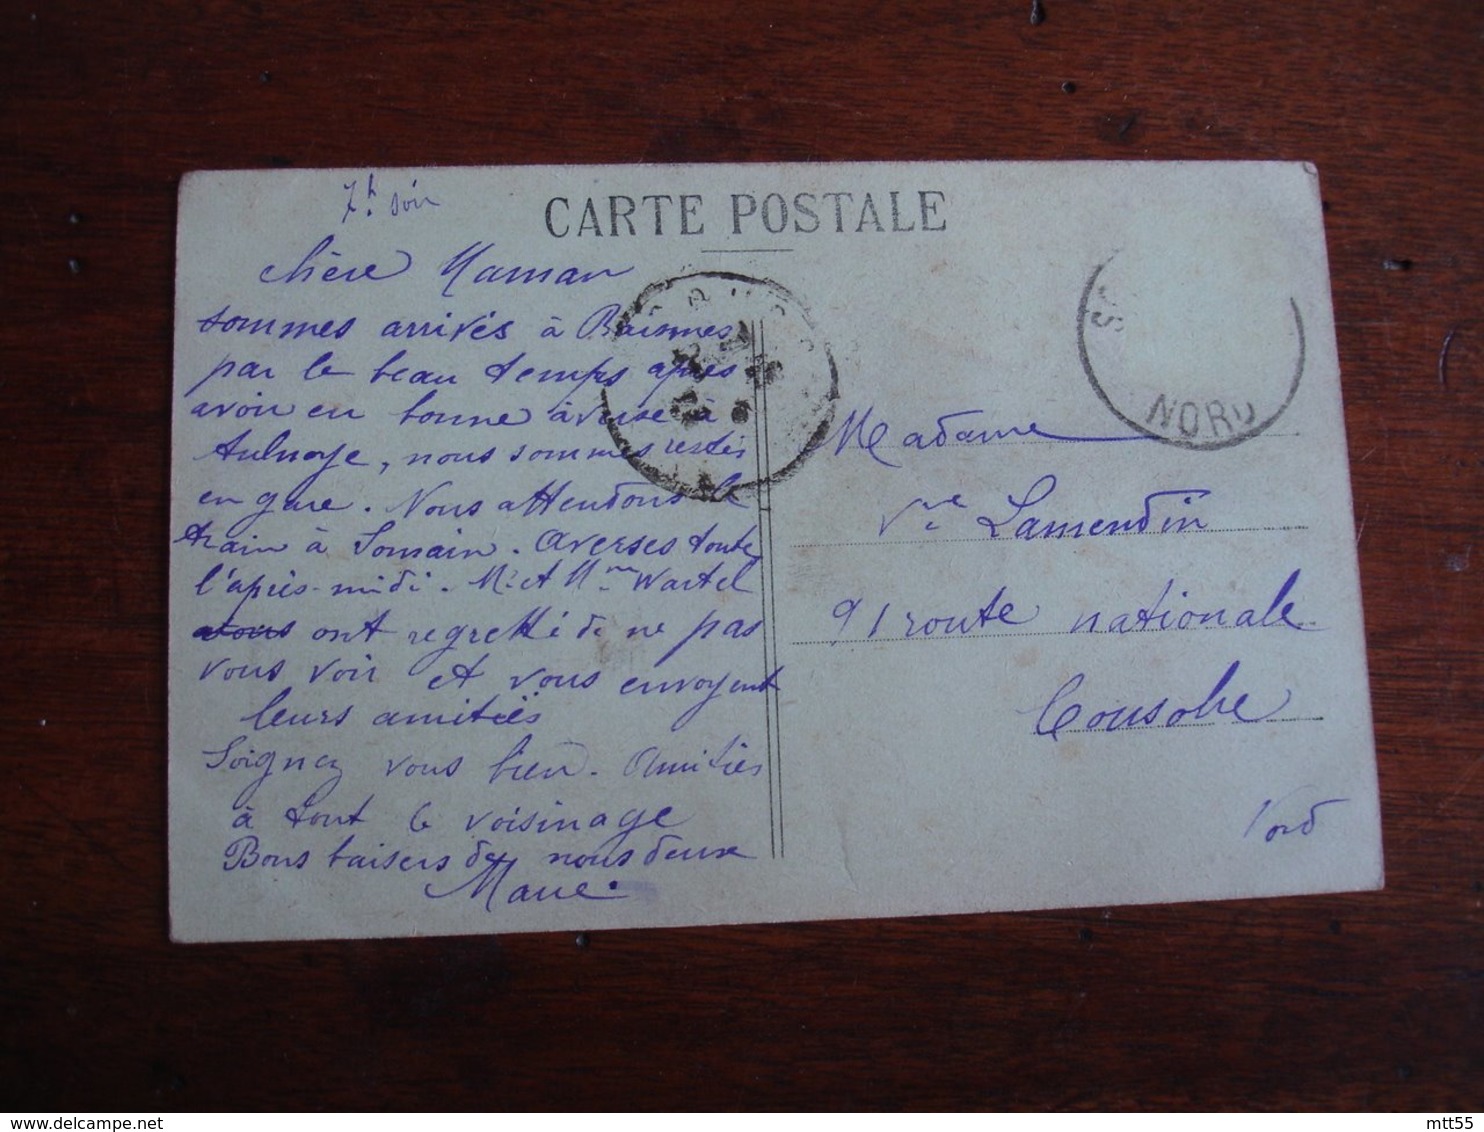 7h. soir
CARTE POSTALE
chère Maman
sommes arrivés à Raismes
par le beau temps après
avoir eu bonne averse à
Aulnoye, nous sommes restés
en gare. Nous attendons le
train à Somain. Averses toute
l'après-midi. Mr. et Mme Wartel
ont regretté de ne pas
vous voir et vous envoyent
leurs amitiés
Soignez vous bien. Amitiés
à tout le voisinage
Bons baisers de nous deux
Marie.
NORD
Madame
Vve Lamendin
91 route nationale
Cousolre
Nord
mtt55